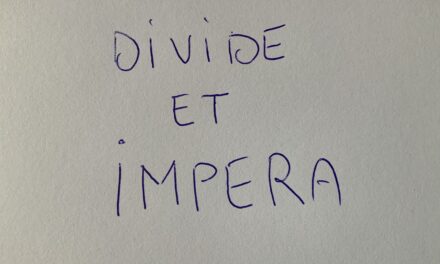 DIVIDE
ET
IMPERA